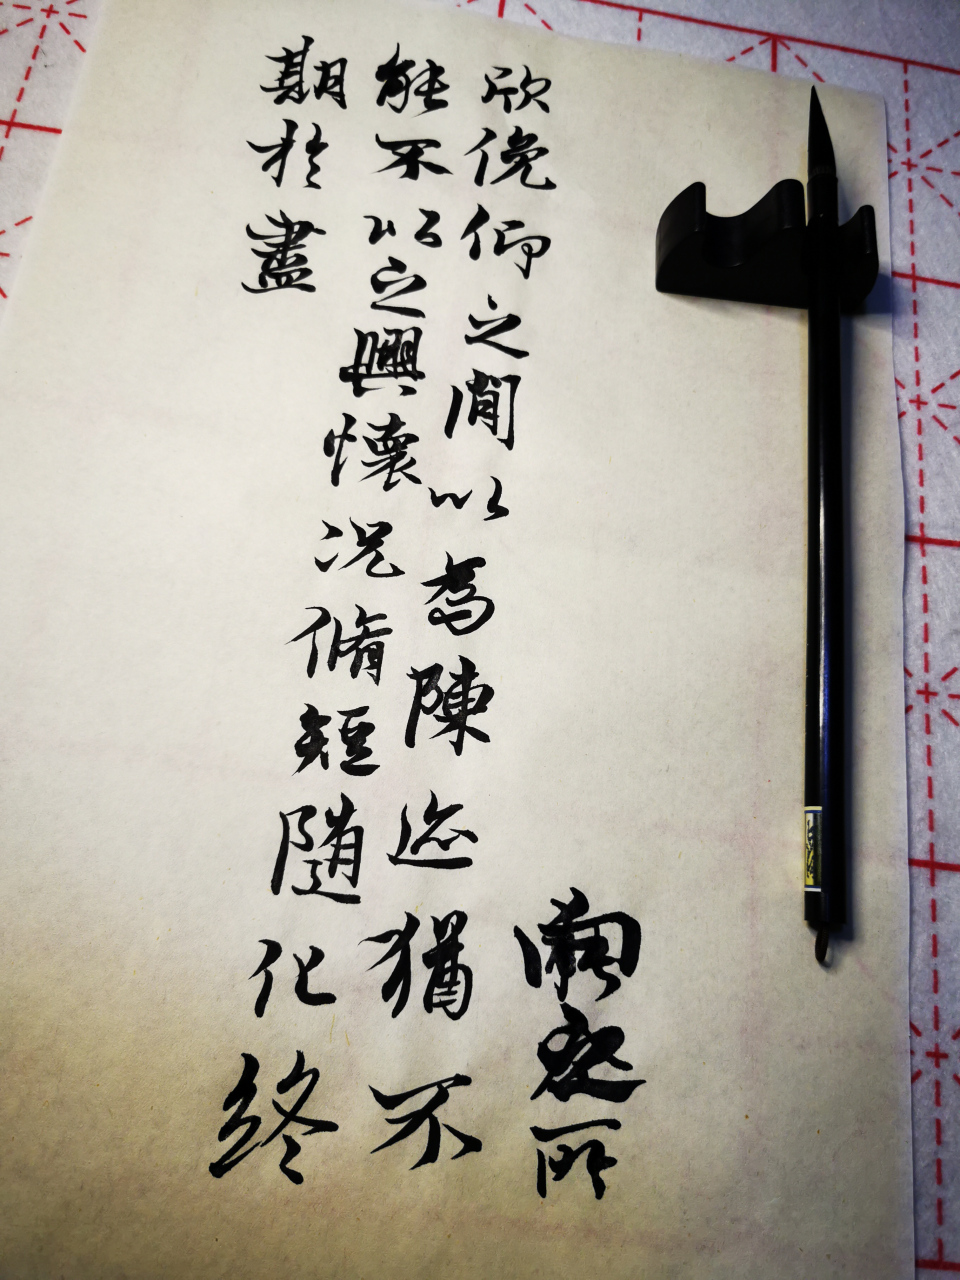 向之所
欣俛仰之閒以為陳迹猶不
能不以之興懷况脩短隨化終
期於盡